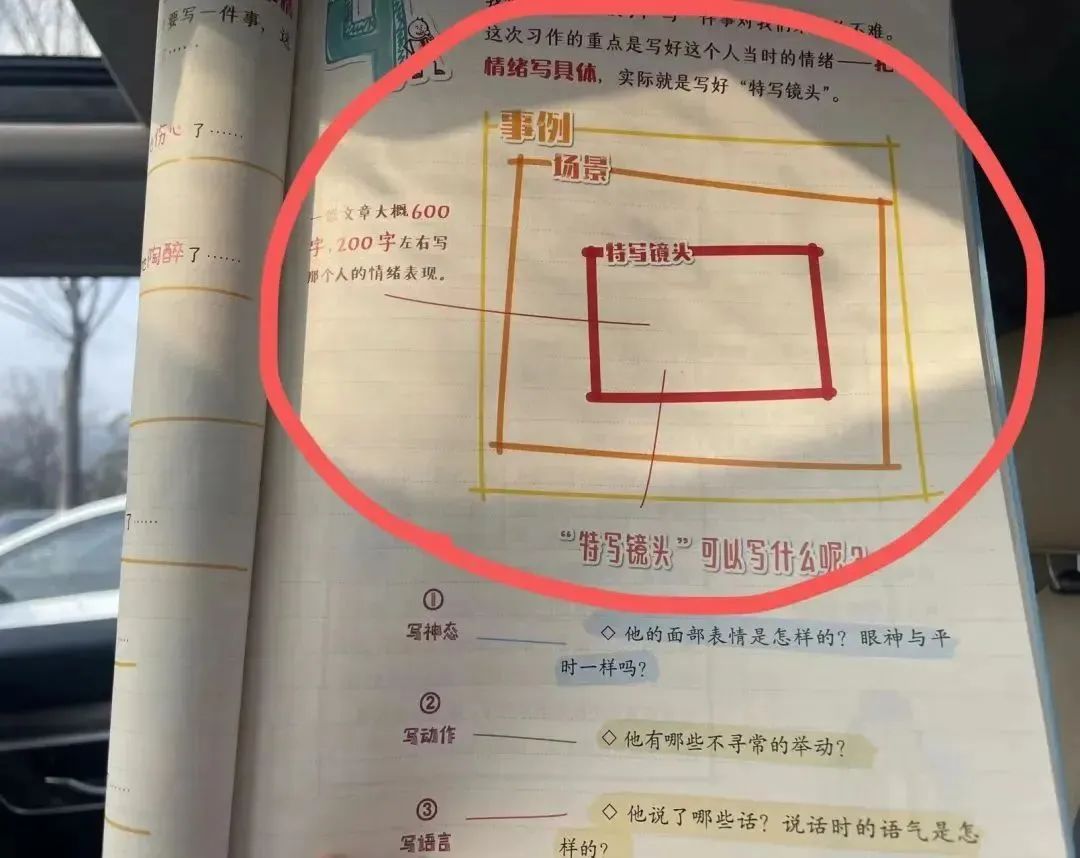 要写一件事，
……
伤心了……
陶醉了……
了……
……
……
4
件事对我们
不难。
这次习作的重点是写好这个人当时的情绪——把
情绪写具体，实际就是写好“特写镜头”。
事例
场景
特写镜头
文章大概600
字，200字左右写
那个人的情绪表现。
“特写镜头”可以写什么呢？
①
写神态
◇他的面部表情是怎样的？眼神与平
时一样吗？
②
写动作
◇他有哪些不寻常的举动？
③
写语言
◇他说了哪些话？说话时的语气是怎
样的？